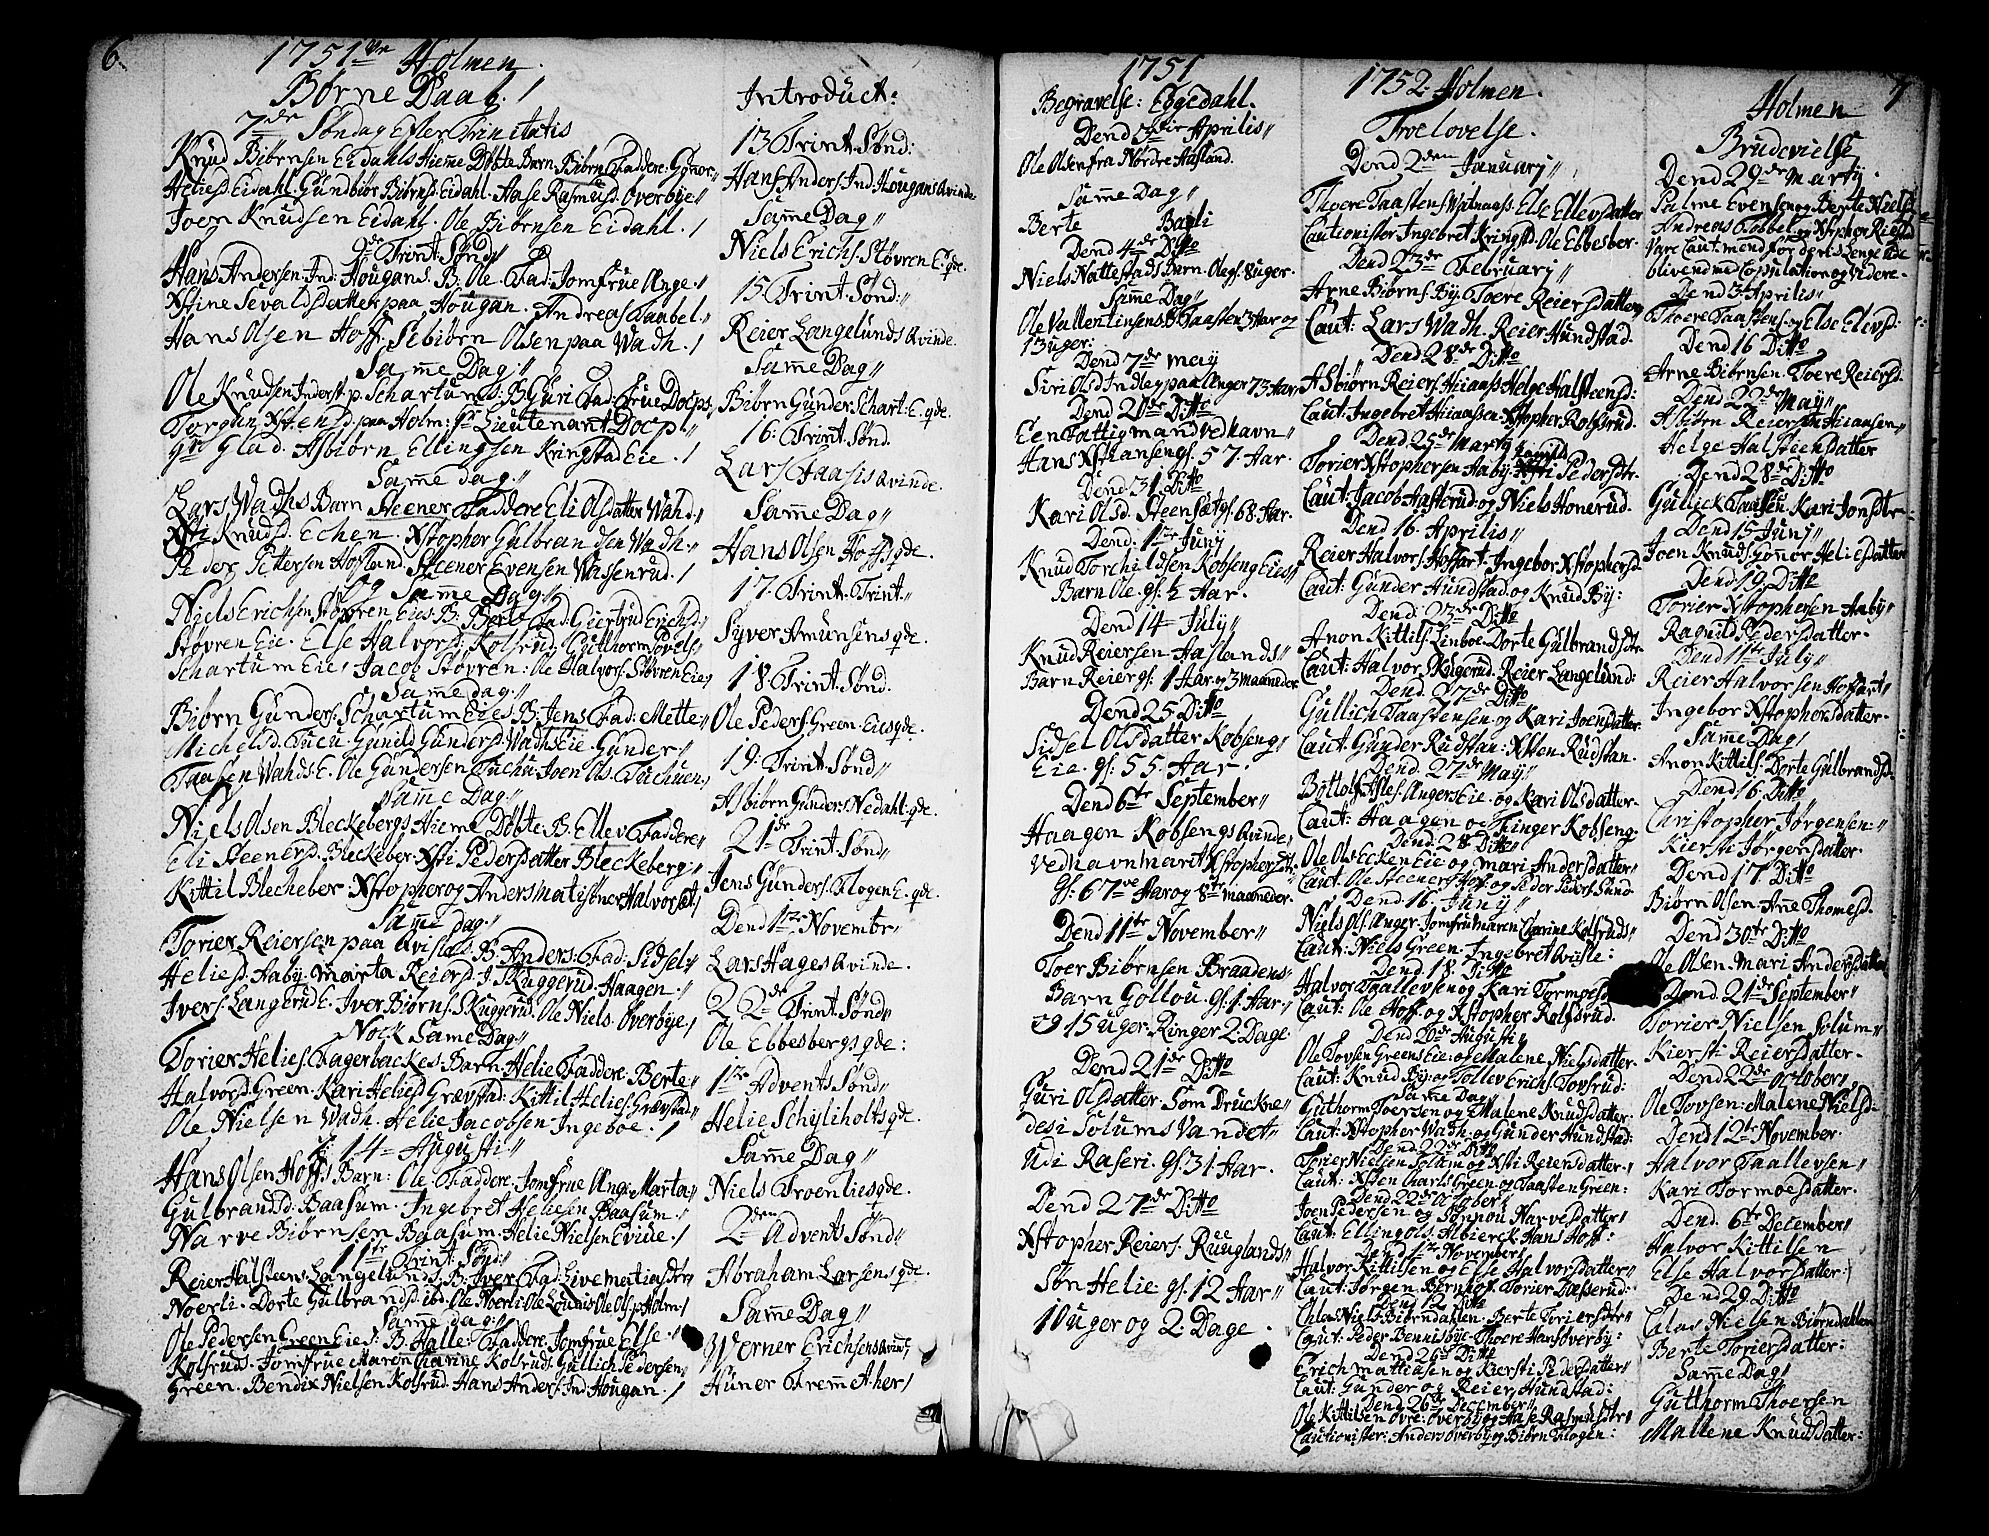 6.
1751 Holmen.
Børne Daab.
7de Søndag Efter Trinitatis
Knud Biørnsen Eidahls Hieme Døbte Barn Biørn Faddere: Gønor
Heliesd. Eidahl. Gundbiør Biørnsd. Eidahl. Aase Rasmusd. Overbye
Joen Knudsen Eidahl. Ole Biørnsen Eidahl. /
9de Trint: Sønd
Hans Andersen Ind: Hougans. B: Ole. Fad: Jomfrue Ange
Xstine Sevaldsdatter paa Hougan. Andreas Faabel
Hans Olsen Hoff. Sebiørn Olsen paa Wadh. /
Same Dag
Ole Knudsen Inderst p. Schartums: B. Guri Fad: Frue Docps
Torsten Xstensd. paa Holm: Hr Lieutenant Docpl
Gr Glad. Asbiørn Ellingsen Kringstad Eie. /
Same dag
Lars Wadhs Barn Steener Faddere Eli Olsdatter Wahd
Xsti Knudsd. Echen. Xstopher Gulbrandsen Wadh.
Peder Pettersen Hofland. Steener Evensen Wassenrud. /
Same Dag
Niels Erichsen Støvren Eies B: Berte Fad: Giertrud Erichsd
Støvren Eie. Else Halvorsd. Kolsrud. Gutthorm Povels
Schartum Eie Jacob Støvren: Ole Halvors: Støvren Eie
Same dag
Biørn Gunders: Schartum Eies B: Jens Fad: Mette
Michelsd. Tucu. Gunild Gundersd. Wadhs Eie. Gunder
Taasen Wahds E. Ole Gundersen Tuchu. Joen Ols. Tuchuen
Same Dag
Niels Olsen Bleckebergs Hieme Døbte B: Ellev Faddere
Eli Steenersd. Bleckeber. Xsti Pedersdatter Bleckeberg
Kittil Blecheber. Xstopher og Anders Matisøner Halvorset
Same dag
Torier Reiersen paa Qvisles B: Anders: Fad: Sidsel
Heliesd. Aaby. Marta Reiersd. Skuggerud. Haagen
Ivers: Langerud E. Iver Biørns. Skuggerud. Ole Niels. Overbye
Nock Same Dag
Torier Helies. Fagerbackes Barn Helie Faddere: Berte
Halvorsd. Green. Kari Heliesd Grævstad: Kittil Helies. Grævstad
Ole Nielsen Wadh. Helie Jacobsen Ingeboe. /
14 Augusti
Hans Olsen Hoffs Barn: Ole Faddere Jomfrue Ang: Marta
Gulbrandsd. Baasum. Ingebret Heliesen Baasum.
Narve Biørnsen Baasum. Helie Nielsen Eviue
11te Trint: Sønd
Reier Halsteens. Langelunds B: Iver Fad: Live Matiasdtr
Noerli. Dorte Gulbrandsd. ibd. Ole Noerli Ole Lounis Ole Ols. p. Holm
Same dag
Ole Pedersen Green Eies: B: Halle: Faddere. Jomfrue Else
Kolsruds. Jomfrue Maren Charine Kolsrud. Gullich Pedersen
Green. Bendix Nielsen Kolsrud. Hans Anders. Ind. Hougan. /
Introduct:
13. Trint. Sønd:
Hans Anders. Ind. Hougans Qvinde
Same Dag
Niels Erichs. Støvren E. qde.
15 Trint. Sønd:
Reier Langelunds Qvinde.
Same Dag
Biørn Gunder: Schart. E. qde.
16. Trint. Sønd.
Lars Faasis Qvinde.
Same Dag
Hans Olsen Hoffs qde.
17. Trint. Trint.
Syver Amunsens qde.
18. Trint. Sønd.
Ole Peders. Green. Eies qde.
19. Trint. Sønd
Asbiørn Gunders. Nedahl. qde.
21de Trint. Sønd
Jens Gunders. Flogen E. qde.
Dend 1te Novembr
Lars Hages Qvinde.
22de Trint Sønd
Ole Ebbesbergs qde:
1te Advents Sønd
Helie Schyliholts qde.
Same Dag
Niels Froenlies qde.
2den Advents Sønd
Abraham Larsens qde.
Same Dag
Werner Erichsens Qvinde
Huner Fremet her
1751
Begravelse: Eggedahl.
Dend 3die Aprilis
Ole Olsen fra Nordre Hafland.
Same Dag
Berte Bagli
Dend 4de Ditto
Niels Nattestads Bern. Ole gs. 8 uger.
Same Dag
Ole Vallentinsens Taasten 3 Aar og
13 uger:
Dend 7de May
Siri Olsd. Indleg paa Anger 73 Aar
Dend 20de Ditto
Een Fattig mand ved Navn
Hans Xstiansen gs. 57. Aar.
Dend 31 Ditto
Kari Olsd. Steensæt gs. 68. Aar.
Dend. 1te Junj
Knud Torchildsen Kobseng Eies
Barn Ole. gs. ½ Aar.
Dend 14 July
Knud Reiersen Haslands
Barn Reier gs. 1 Aar og 3 Maaneder
Dend 25 Ditto
Sidsel Olsdatter Kobseng
Eie. gs. 55. Aar.
Dend 6te September
Haagen Kobsengs Qvinde
ved Navn Marit Xstophersdtr
gs. 67ve Aar og 8te Maaneder.
Dend 11te November
Toer Biørnsen Braadens
Barn Gollou. gs. 1. Aar
og 15 uger. Ringer 2 Dage
Dend 21de Ditto
Guri Olsdatter. Som Druckne
des i Solums Vandet
Udi Raseri. gs. 31. Aar.
Dend 27de Ditto
Xstopher Reiers. Ruuglands
Søn Helie gs. 12 Aar
10 uger og 2. Dage.
1752: Holmen.
Troelovelse.
Dend 2den Januarj
Thoere Taastens. Watnaas. Else Ellevsdatter
Cautionister Ingebret Kringsd. Ole Ebbesber.
Dend 23de Februarj
Arne Biørns. By. Toere Reiersdatter
Caut: Lars Wadh. Reier Hundstad.
Dend 28de Ditto
Asbiørn Reiers. Hiaas. Helge Halsteensd:
Caut: Ingebret Hiaasen. Xstopher Rolfsrud.
Dend 25de Marty
Torier Xstophersen Aaby. Ragnild Pedersdtr.
Caut: Jacob Hasterud. og Niels Honerud.
Dend 16. Aprilis
Reier Halvors. Hoffart. Ingebor Xstophersd.
Caut: Gunder Hundstad. og Knud By:
Dend. 23de Ditto
Anon Kittils. Linboe. Dorte Gulbrandsdtr
Caut: Halvor Skugerud. Reier Langelund:
Dend. 27de Ditto
Gullich Taastensen og Kari Joensdatter
Caut: Gunder Rudstan: Xsten Rudstan.
Dend. 27de May
Bottolf Alefs. Angers Eie. og Kari Olsdatter.
Caut: Haagen og Thinger Kobseng.
Dend. 28 Ditto
Ole Ols. Ecken Eie og Mari Andersdatter
Caut: Ole Steeners. Hoff. og Peder Peders. Sund
Dend 16. Junj
Niels Ols. Anger. Jomfru Maren Charine Kolsruds
Caut: Niels Green. Ingebret Qvisle:
Dend 18. Ditto
Halvor Taallevsen og Kari Tormoesd
Caut: Ole Hoff. og Xstopher Rolfsrud.
Dend 20de Augusti
Ole Tovsen Greens Eie. og Malene Nielsdatter.
Caut: Knud By. og Tollev Erichs. Tovsrud:
Same Dag
Guthorm Toersen og Malene Knudsdatter
Caut: Xstopher Wadh. og Gunder Hundstad:
Dend 22de Ditto
Torier Nielsen Solum og Xsti Reiersdatter.
Caut: Xsten Charls. Green og Taasten Green:
Dend 22de October
Joen Pedersen og Jønnou Narvesdatter
Caut: Elling Ols. Albierck. Hans Hoff:
Dend 1te November
Halvor Kittilsen og Else Halvorsdatter
Caut: Jørgen Bernhof. Torier Dæserud:
Dend 12 Ditto
Chlas Niels. Biørndahlen. Berte Toriersdtr
Caut: Peder Bennisbye. Thoere Hansoverby:
Dend 26de Ditto
Erich Mattiasen og Kiersti Pedersdatter
Caut: Gunder og Reier Hundstad:
Dend 26de December
Ole Kittilsen Øvre: Overby og Aase Rasmusdtr
Cautionister: Anders Overby og Biørn Flogen:
7
Holmen
Brudevielse
Dend 29de Marty.
Palme Evensen og Berte Niels
Andreas Fobbel. og Xstopher Riestad
Vare Caut: mend for deris Længe Ude
blivend med Copulation og videre.
Dend 3de Aprilis
Thoere Taastens. og Else Elevsd:
Dend 16 Ditto
Arne Biørnsen. Toere Reiersd.
Dend 22de May
Asbiørn Reiersen Hiaasen
Helge Halsteensdatter
Dend 28de Ditto
Gullick Taassen Kari Jonsdtr.
Dend 15 Junj
Joen Knuds. Gønnor Heliesdatter
Dend 19. Ditto
Torier Xstophersen Aaby
Ragnild Pedersdatter.
Dend 11te July
Reier Halvorsen Hoffart
Ingebor Xstophersdatter.
Same Dag
Anon Kittils. Dorte Gulbrandsd.
Dend 16 Ditto
Christopher Jørgensen:
Kiersti Jørgensdatter.
Dend 17. Ditto
Biørn Olsen. Ane Thomesd.
Dend 30te Ditto
Ole Olsen. Mari Andersdatter
Dend. 21de September
Torier Nielsen Solum
Kiersti Reiersdatter.
Dend 22de October
Ole Tovsen: Malene Nielsd:
Dend 12te November.
Halvor Taallevsen
Kari Tormoesdatter.
Dend. 6te December
Halvor Kittilsen
Else Halvorsdatter:
Dend 29. Ditto
Chlas Nielsen Biørndahlen
Berte Toriersdatter:
Same Dag
Gutthorm Thoersen
Mallene Knudsdatter: